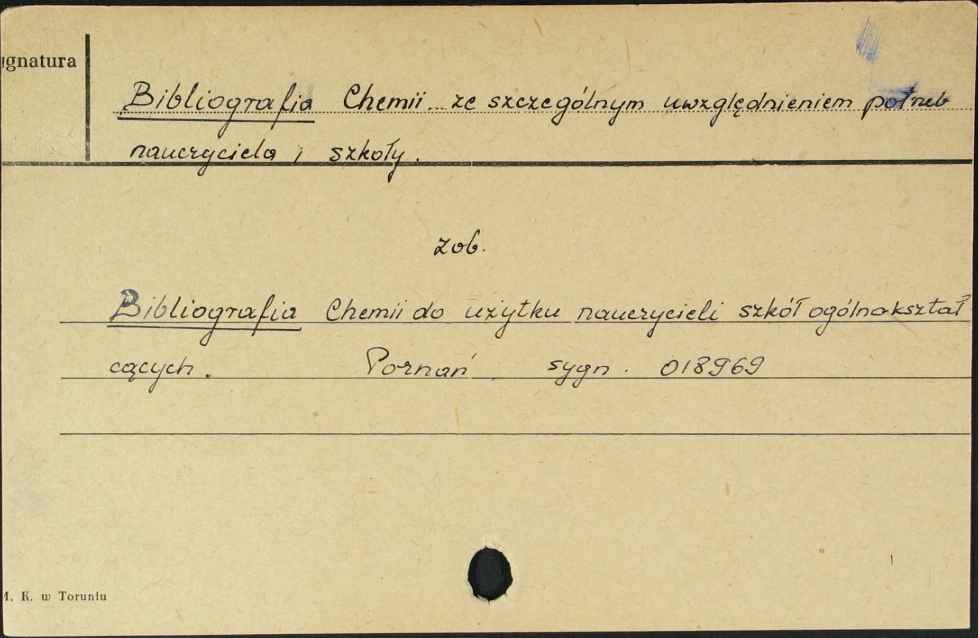 ygnatura
Bibliografia Chemii ze szczególnym uwzględnieniem potrzeb
nauczyciela i szkoły.
zob.
Bibliografia Chemii do użytku nauczycieli szkół ogólnokształ
cących. Poznań sygn. 018969
M. K. w Toruniu